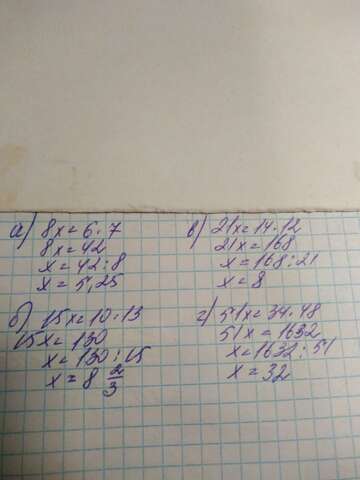 а) 8x=6·7
8x=42
x=42:8
x=5,25
б) 15x=10·13
15x=130
x=130:15
x=8 2/3
в) 21x=14·12
21x=168
x=168:21
x=8
г) 51x=34·48
51x=1632
x=1632:51
x=32